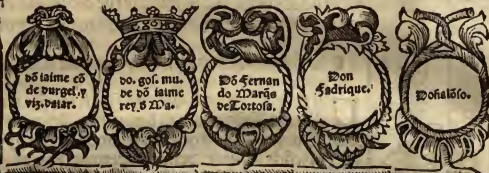 dō iaime cō
de vurgel, y
viz. dalar.
do. gos. mu.
de dō iaime
rey.ð Ma.
Dō Fernan
do Marq̄s
de Tortosa.
Don
Fadrique.
Doñalōso.